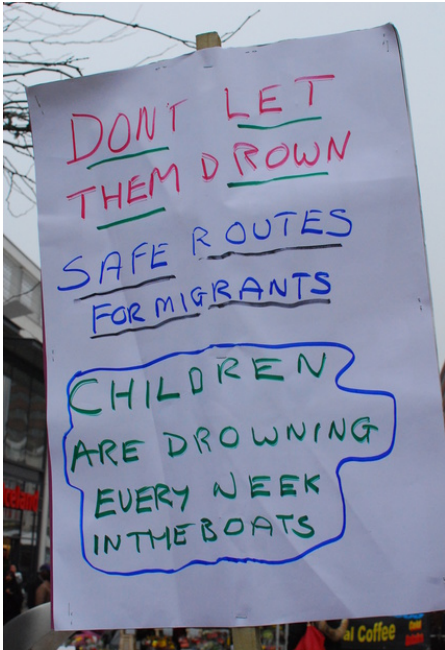 DONT LET
THEM DROWN
SAFE ROUTES
FOR MIGRANTS
CHILDREN
ARE DROWNING
EVERY WEEK
IN THE BOATS
Iceland
al Coffee